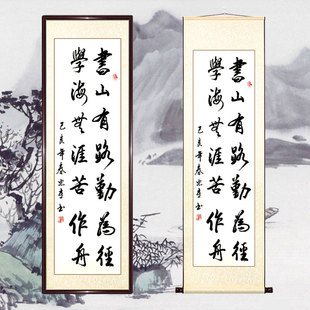 書山有路勤為徑
學海無涯苦作舟
己亥年春
書山有路勤為徑
學海無涯苦作舟
己亥年春